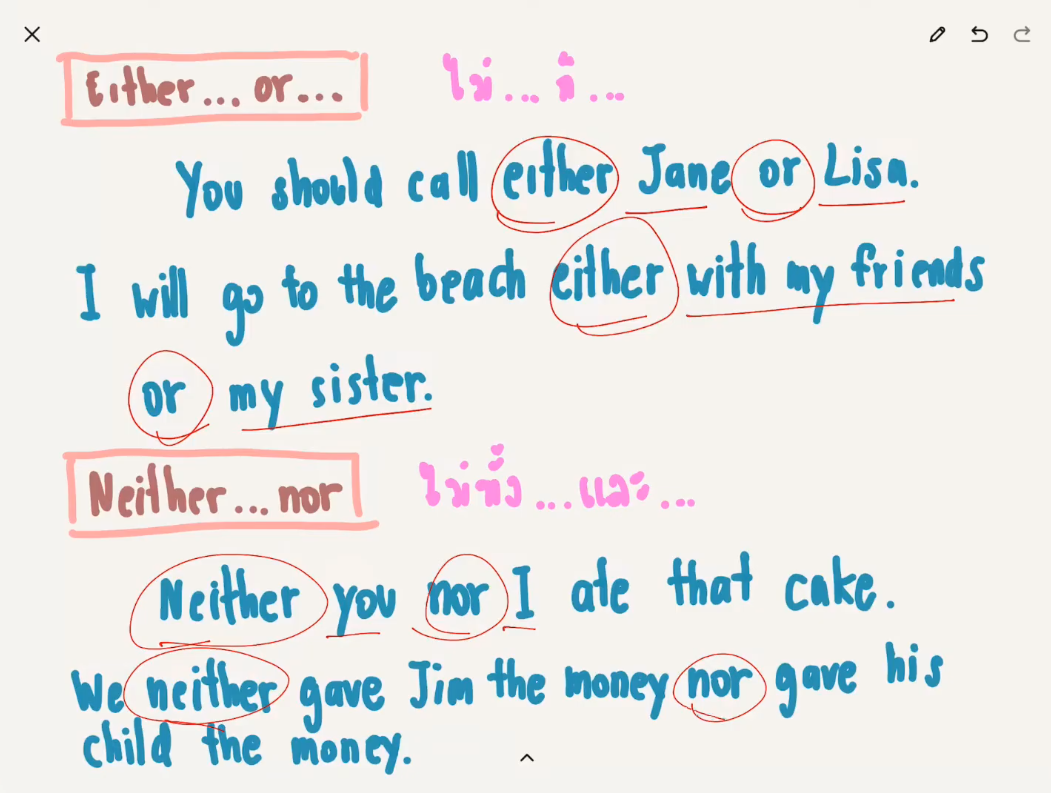 Either... or... ไม่ ... ก็ ...
You should call either Jane or Lisa.
I will go to the beach either with my friends
or my sister.
Neither... nor ไม่ทั้ง ... และ ...
Neither you nor I ate that cake.
We neither gave Jim the money nor gave his
child the money.